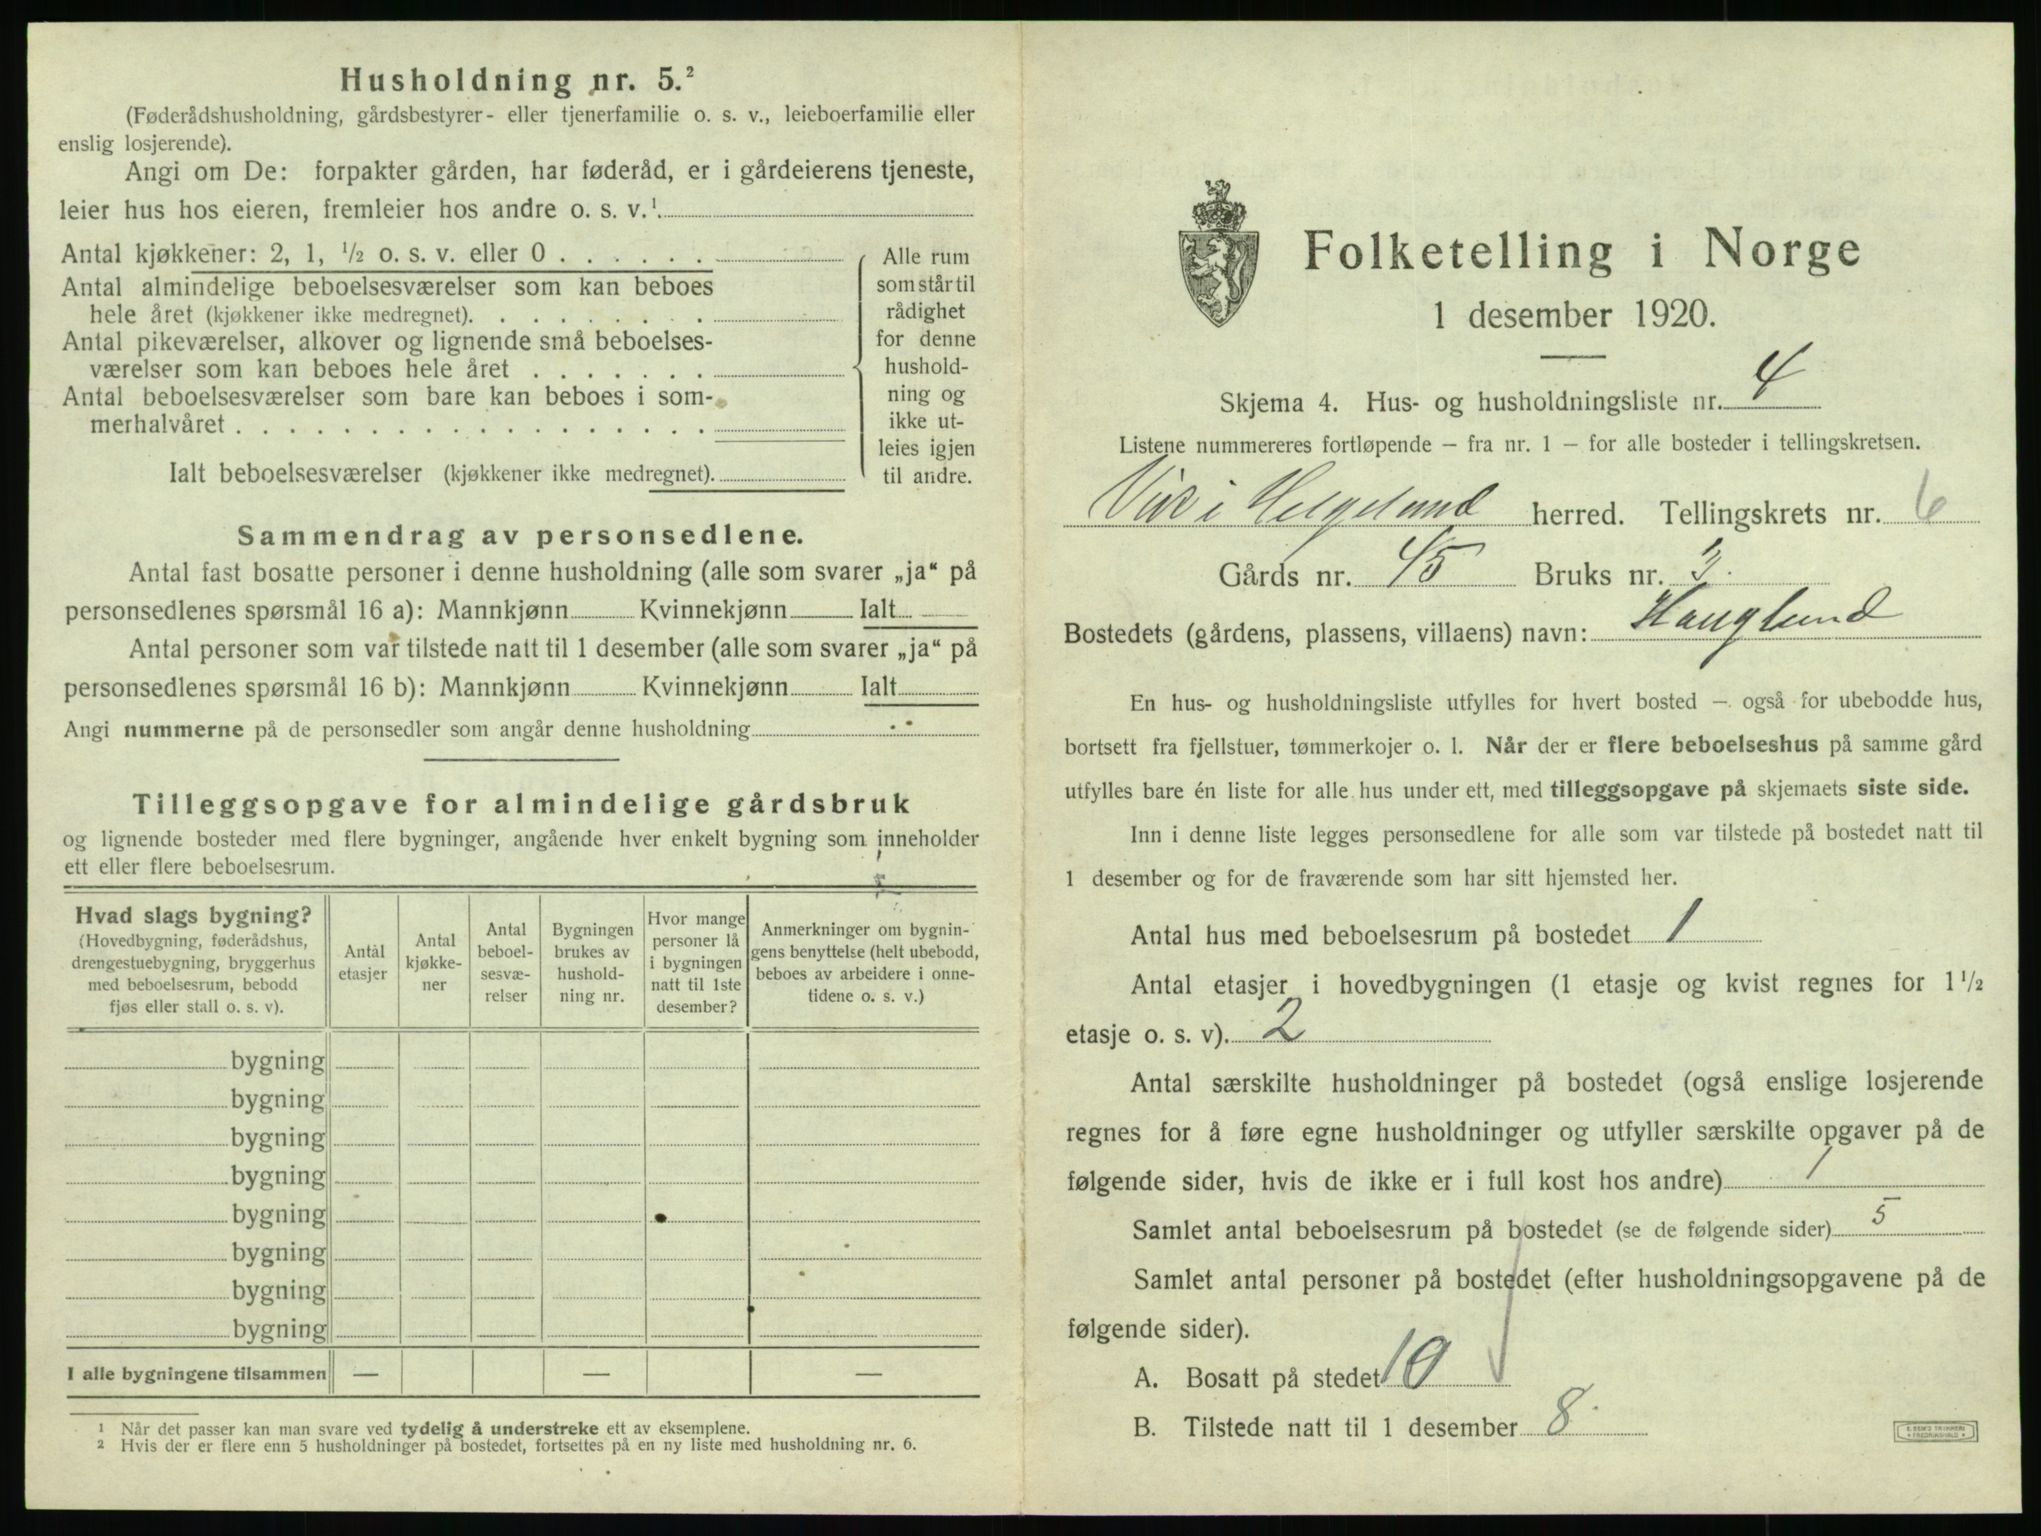 Husholdning nr. 5.²
(Føderådshusholdning, gårdsbestyrer- eller tjenerfamilie o. s. v., leieboerfamilie eller
enslig losjerende).
Angi om De: forpakter gården, har føderåd, er i gårdeierens tjeneste,
leier hus hos eieren, fremleier hos andre o. s. v.¹
Antal kjøkkener: 2, 1, ½ o. s. v. eller 0
Antal almindelige beboelsesværelser som kan beboes
hele året (kjøkkener ikke medregnet).
Antal pikeværelser, alkover og lignende små beboelses-
værelser som kan beboes hele året
Antal beboelsesværelser som bare kan beboes i som-
merhalvåret
Ialt beboelsesværelser (kjøkkener ikke medregnet).
Alle rum
som står til
rådighet
for denne
hushold-
ning og
ikke ut-
leies igjen
til andre.
Sammendrag av personsedlene.
Antal fast bosatte personer i denne husholdning (alle som svarer „ja“ på
personsedlenes spørsmål 16 a): Mannkjønn Kvinnekjønn Ialt
Antal personer som var tilstede natt til 1 desember (alle som svarer „ja“ på
personsedlenes spørsmål 16 b): Mannkjønn Kvinnekjønn Ialt
Angi nummerne på de personsedler som angår denne husholdning
Tilleggsopgave for almindelige gårdsbruk
og lignende bosteder med flere bygninger, angående hver enkelt bygning som inneholder
ett eller flere beboelsesrum.
Hvad slags bygning?
(Hovedbygning, føderådshus,
drengestuebygning, bryggerhus
med beboelsesrum, bebodd
fjøs eller stall o. s. v).
Antal
etasjer
Antal
kjøkke-
ner
Antal
beboel-
sesvæ-
relser
Bygningen
brukes av
hushold-
ning nr.
Hvor mange
personer lå
i bygningen
natt til 1ste
desember?
Anmerkninger om bygnin-
gens benyttelse (helt ubebodd,
beboes av arbeidere i onne-
tidene o. s. v.)
bygning
bygning
bygning
bygning
bygning
bygning
bygning
bygning
I alle bygningene tilsammen — — —
¹ Når det passer kan man svare ved tydelig å understreke ett av eksemplene.
² Hvis der er flere enn 5 husholdninger på bostedet, fortsettes på en ny liste med husholdning nr. 6.
Folketelling i Norge
1 desember 1920.
Skjema 4. Hus- og husholdningsliste nr. 4
Listene nummereres fortløpende – fra nr. 1 – for alle bosteder i tellingskretsen.
Vik i Helgeland herred. Tellingskrets nr. 6
Gårds nr. 45 Bruks nr. 3.
Bostedets (gårdens, plassens, villaens) navn: Hauglund
En hus- og husholdningsliste utfylles for hvert bosted – også for ubebodde hus,
bortsett fra fjellstuer, tømmerkojer o. l. Når der er flere beboelseshus på samme gård
utfylles bare én liste for alle hus under ett, med tilleggsopgave på skjemaets siste side.
Inn i denne liste legges personsedlene for alle som var tilstede på bostedet natt til
1 desember og for de fraværende som har sitt hjemsted her.
Antal hus med beboelsesrum på bostedet 1
Antal etasjer i hovedbygningen (1 etasje og kvist regnes for 1½
etasje o. s. v). 2
Antal særskilte husholdninger på bostedet (også enslige losjerende
regnes for å føre egne husholdninger og utfyller særskilte opgaver på de
følgende sider, hvis de ikke er i full kost hos andre) 1
Samlet antal beboelsesrum på bostedet (se de følgende sider) 5
Samlet antal personer på bostedet (efter husholdningsopgavene på de
følgende sider).
A. Bosatt på stedet 10
B. Tilstede natt til 1 desember 8